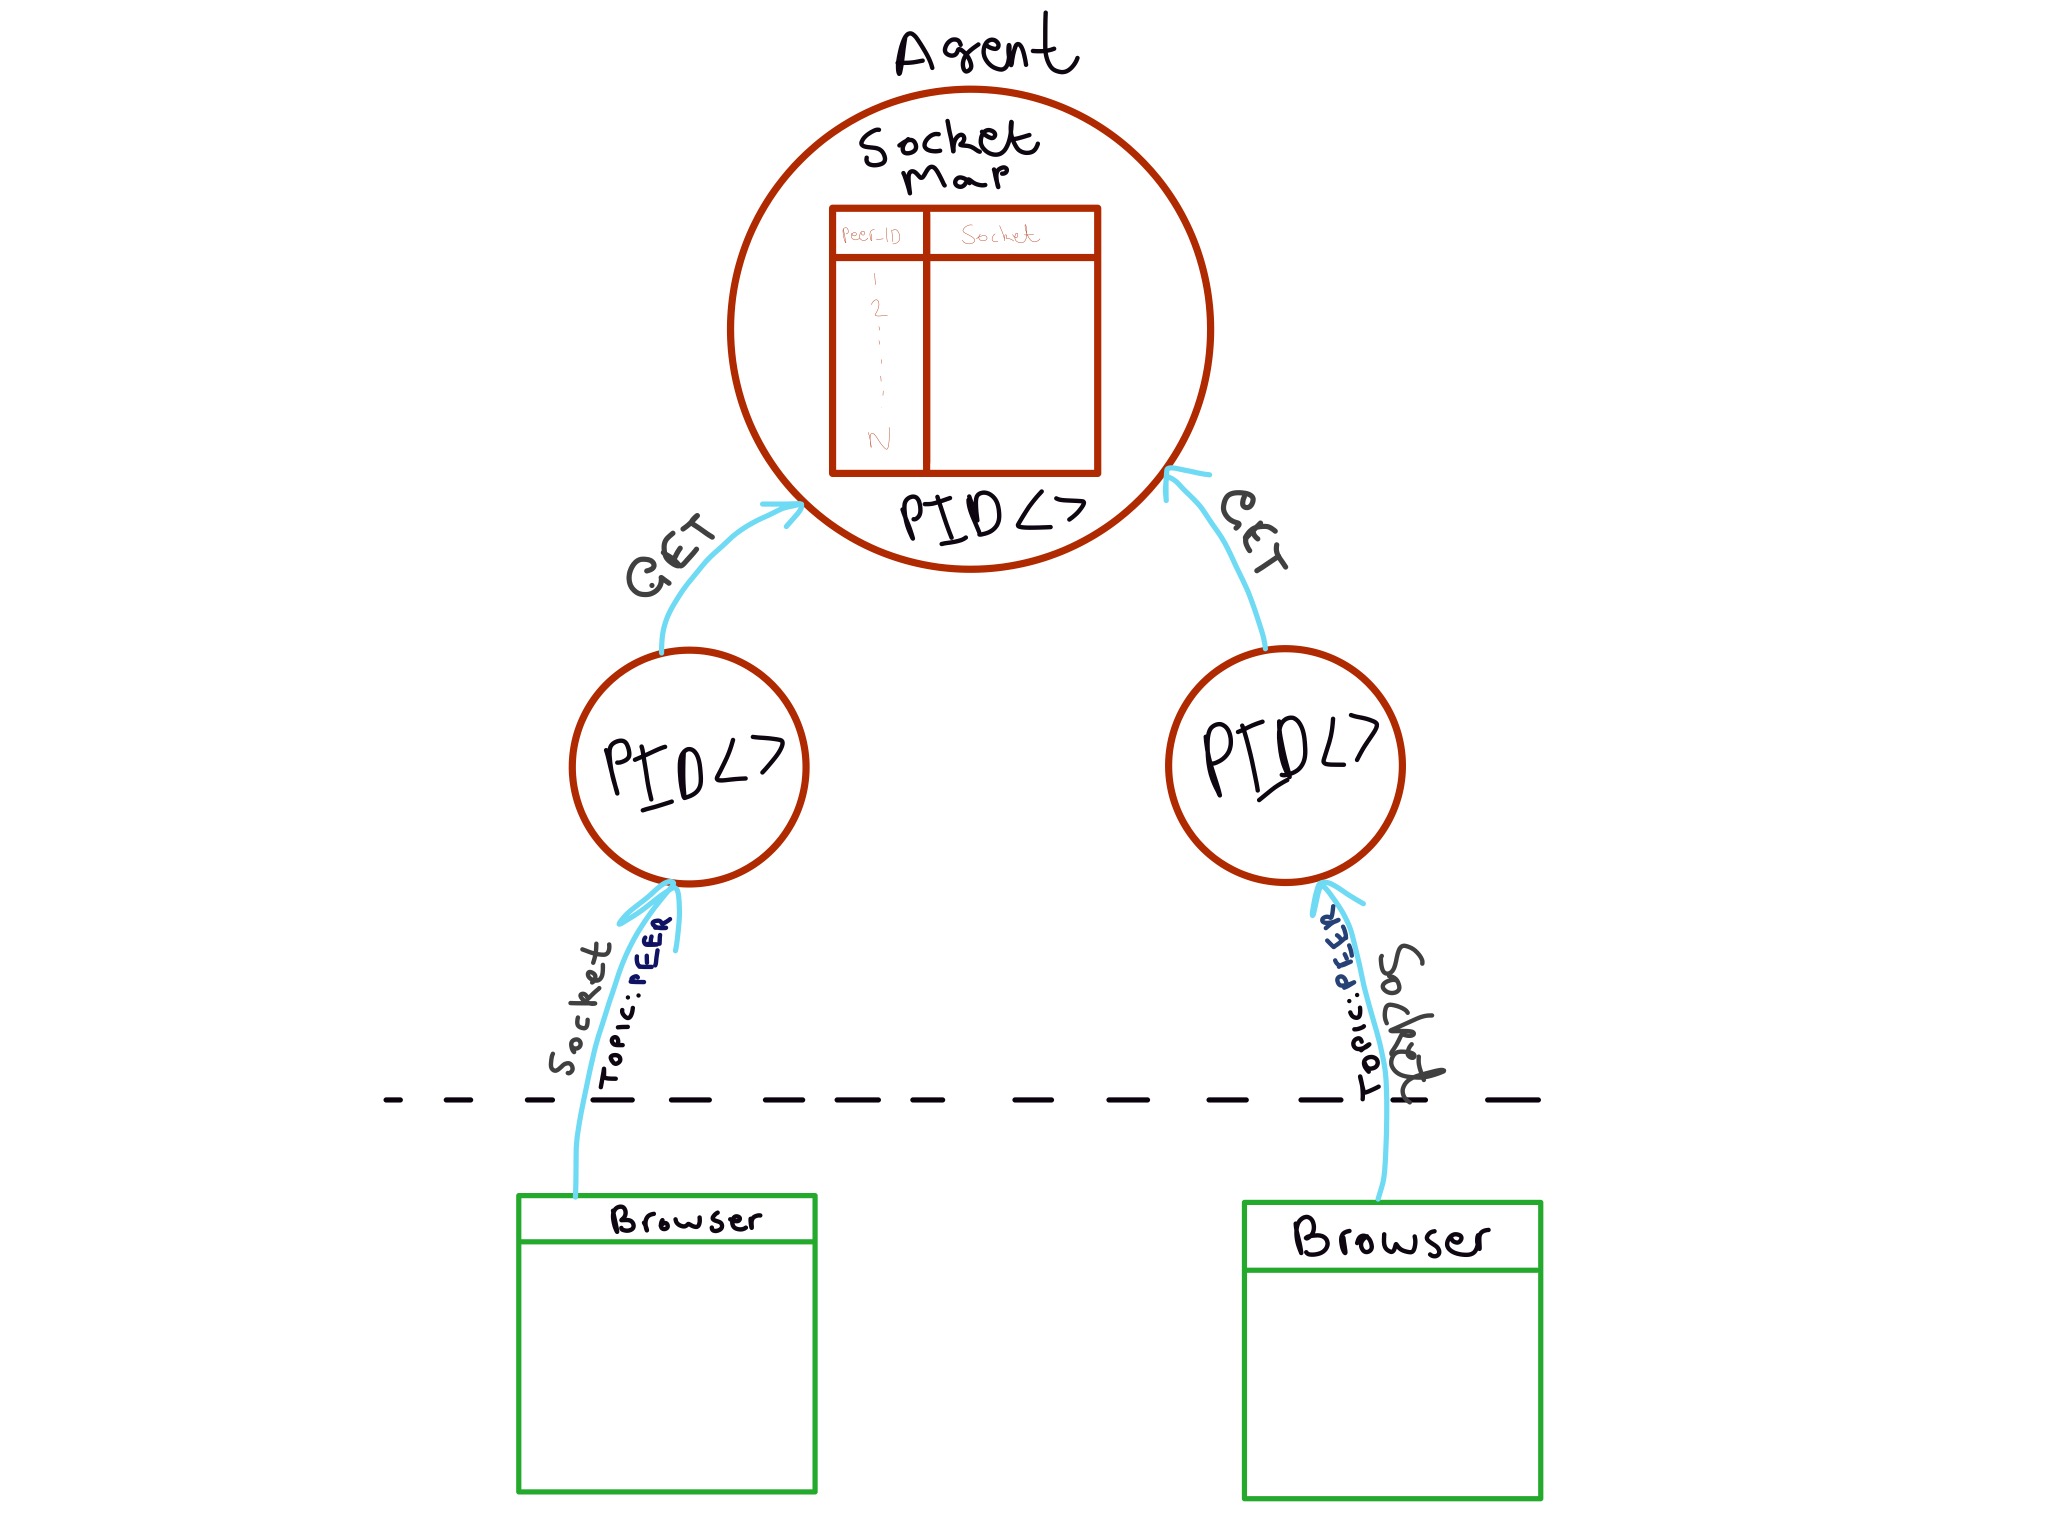 Agent
Socket
Map
Peer_ID
Socket
1
2
N
PID<>
GET
GET
PID<>
PID<>
Socket
TOPIC::PEER
TOPIC::PEER
Socket
Browser
Browser